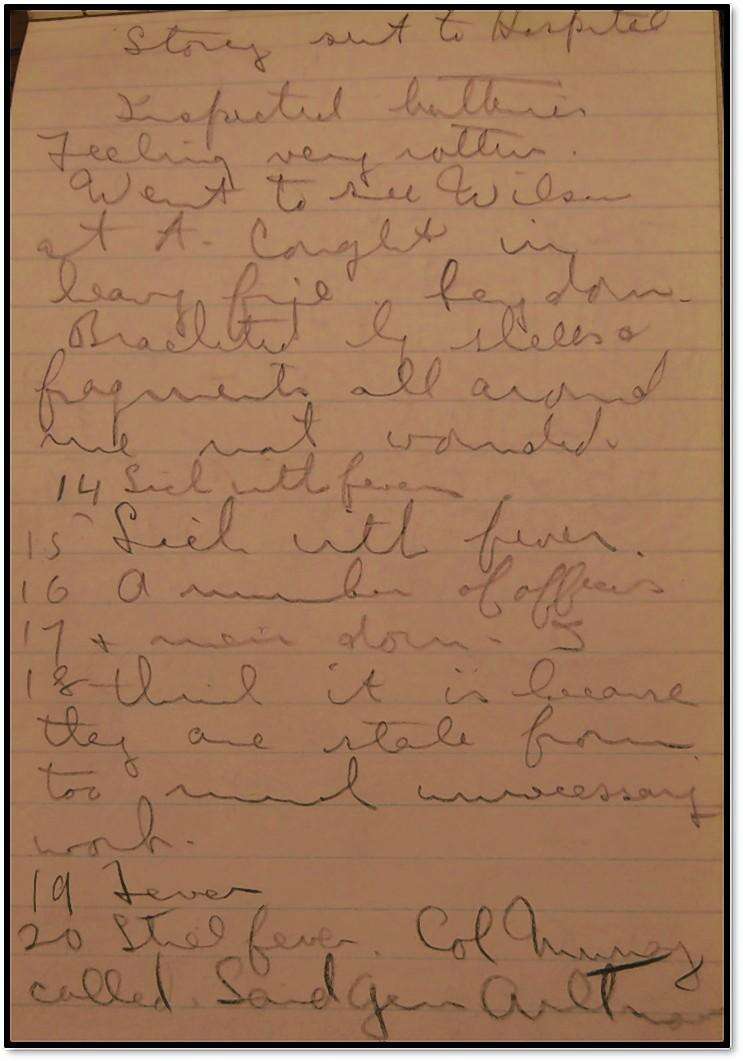 Storey sent to Hospital
Inspected batteries
Feeling very rotten.
Went to see Wilson
at A. Caught in
heavy fire. Lay down.
Bracketed by shells &
fragments all around
me not wounded.
14 Sick with fever
15 Sick with fever.
16 A number of officers
17 & men down. I
18 think it is because
they are stale from
too much unnecessary
work.
19 Fever
20 Still fever. Col Murray
called. Said Gen